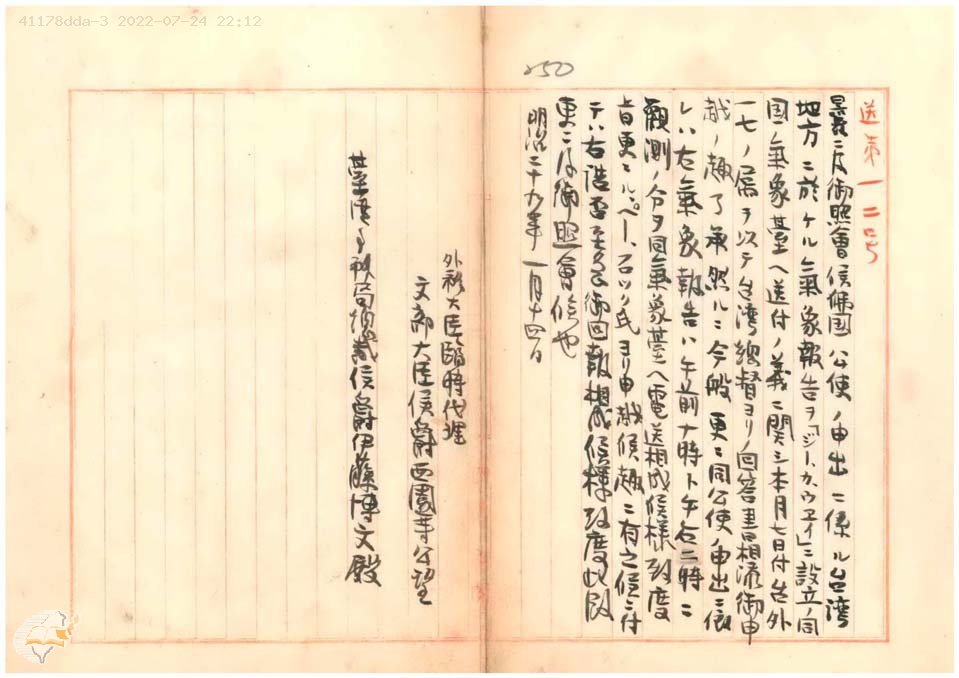 41178dda-3 2022-07-24 22:12
250
送第一二号
曩ニ及御照會候佛国公使ノ申出ニ係ル台湾
地方ニ於ケル氣象報告ヲ「ジーカ、ウエイ」ニ設立ノ同
国氣象臺ヘ送付ノ義ニ関シ本月七日付台外
一七ノ属ヲ以テ台湾総督ヨリノ回答書相添御申
越ノ趣了承然ルニ今般更ニ同公使ノ申出ニ依
レハ右氣象報告ハ午前十時ト午后二時ニ
観測ノ分ヲ同氣象臺ヘ電送相成候様致度
旨更ニルペー、ロツク氏ヨリ申越候趣ニ有之候ニ付
テハ右諾否至急御回報相成候様致度此段
更ニ及御照會候也
明治二十九年一月十四日
外務大臣臨時代理
文部大臣侯爵西園寺公望
臺湾事務局総裁侯爵伊藤博文殿